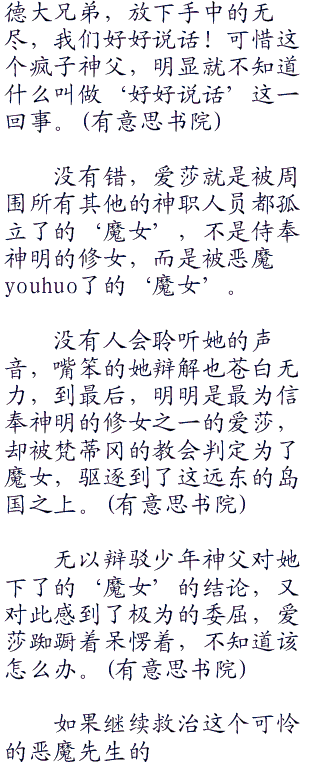 德大兄弟，放下手中的无
尽，我们好好说话！可惜这
个疯子神父，明显就不知道
什么叫做‘好好说话’这一
回事。(有意思书院)
没有错，爱莎就是被周
围所有其他的神职人员都孤
立了的‘魔女’，不是侍奉
神明的修女，而是被恶魔
youhuo了的‘魔女’。
没有人会聆听她的声
音，嘴笨的她辩解也苍白无
力，到最后，明明是最为信
奉神明的修女之一的爱莎，
却被梵蒂冈的教会判定为了
魔女，驱逐到了这远东的岛
国之上。(有意思书院)
无以辩驳少年神父对她
下了的‘魔女’的结论，又
对此感到了极为的委屈，爱
莎踟蹰着呆愣着，不知道该
怎么办。(有意思书院)
如果继续救治这个可怜
的恶魔先生的